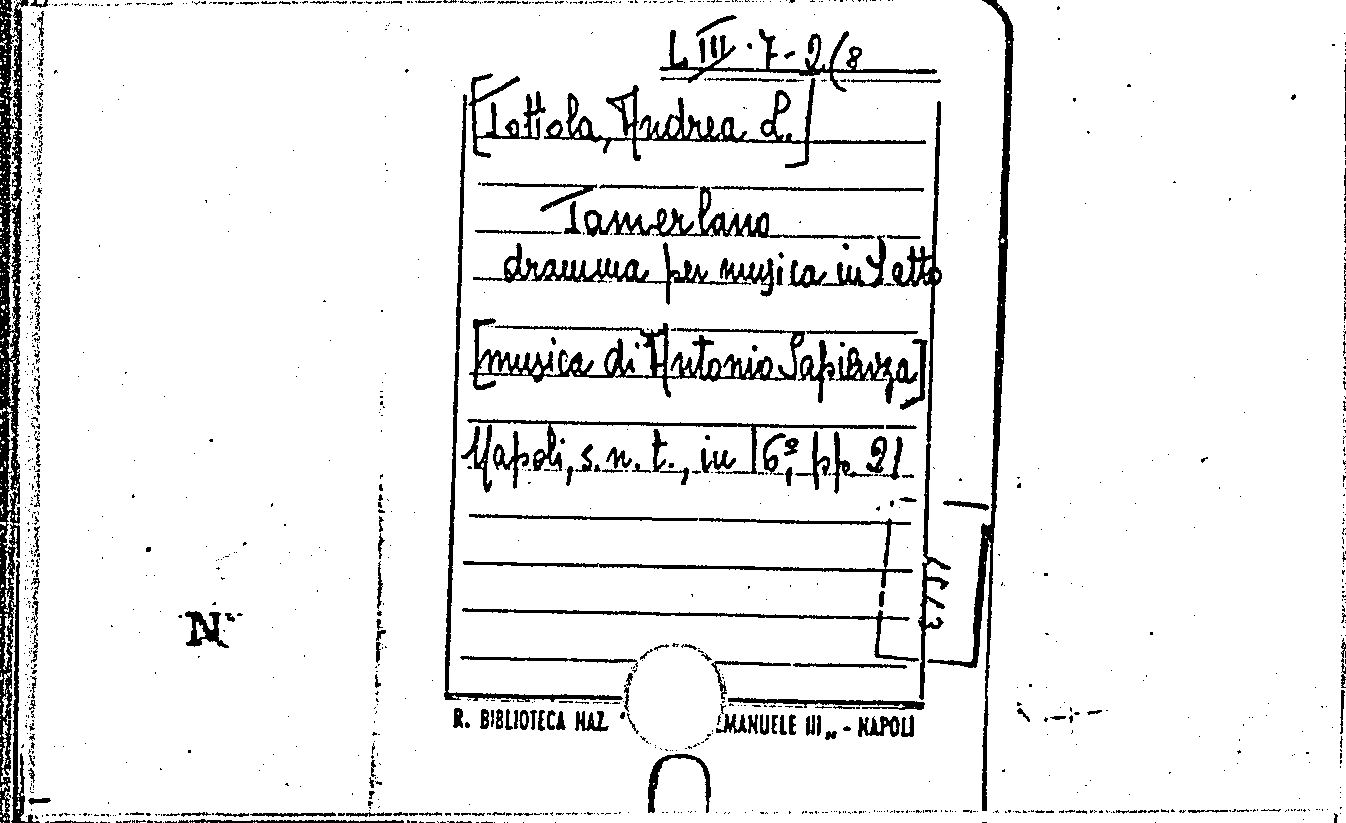 L. III. 7-2 (8
[Tottola, Andrea L.]
Tamerlano
dramma per musica in 2 atto
[musica di Antonio Sapienza]
Napoli, s. n. t., in 16º, pp. 21
N
R. BIBLIOTECA NAZ. " EMANUELE III„ - NAPOLI